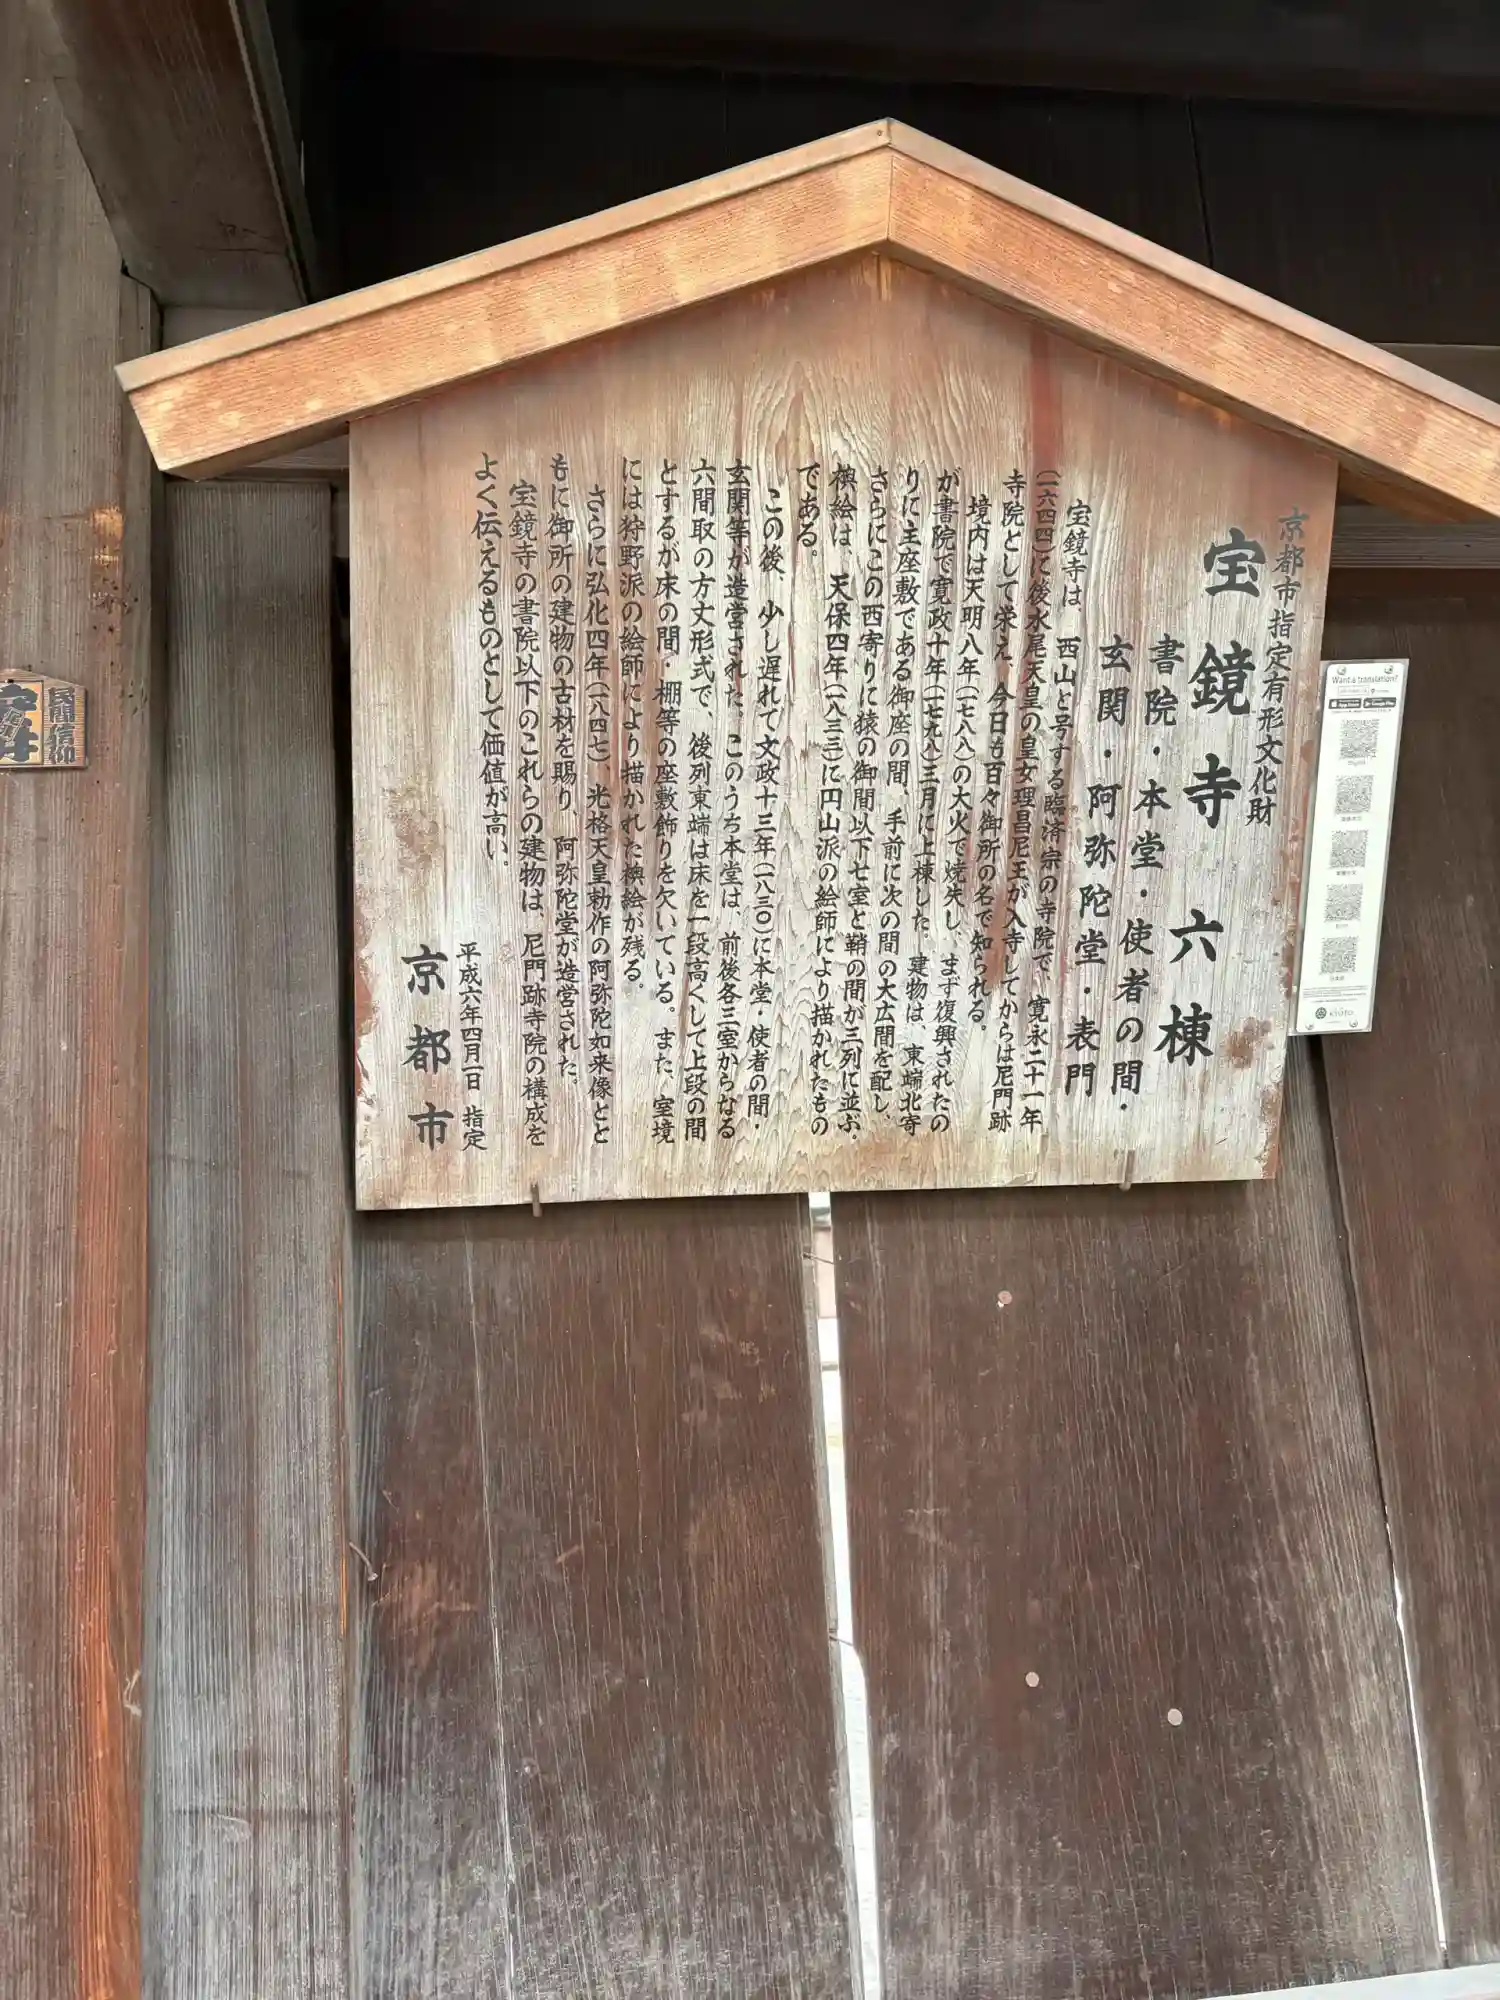 京都市指定有形文化財
宝鏡寺 六棟
書院・本堂・使者の間・
玄関・阿弥陀堂・表門
宝鏡寺は、西山と号する臨済宗の寺院で、寛永二十一年
(一六四四)に後水尾天皇の皇女理昌尼王が入寺してからは尼門跡
寺院として栄え、今日も百々御所の名で知られる。
境内は天明八年(一七八八)の大火で焼失し、まず復興されたの
が書院で寛政十年(一七九八)三月に上棟した。建物は、東端北寄
りに主座敷である御座の間、手前に次の間の大広間を配し、
さらにこの西寄りに猿の御間以下七室と鞘の間が三列に並ぶ。
襖絵は、天保四年(一八三三)に円山派の絵師により描かれたもの
である。
この後、少し遅れて文政十三年(一八三〇)に本堂・使者の間・
玄関等が造営された。このうち本堂は、前後各三室からなる
六間取の方丈形式で、後列東端は床を一段高くして上段の間
とするが床の間・棚等の座敷飾りを欠いている。また、室境
には狩野派の絵師により描かれた襖絵が残る。
さらに弘化四年(一八四七)、光格天皇勅作の阿弥陀如来像とと
もに御所の建物の古材を賜り、阿弥陀堂が造営された。
宝鏡寺の書院以下のこれらの建物は、尼門跡寺院の構成を
よく伝えるものとして価値が高い。
平成六年四月一日 指定
京都市
Want a translation?
KYOTO
民間信仰